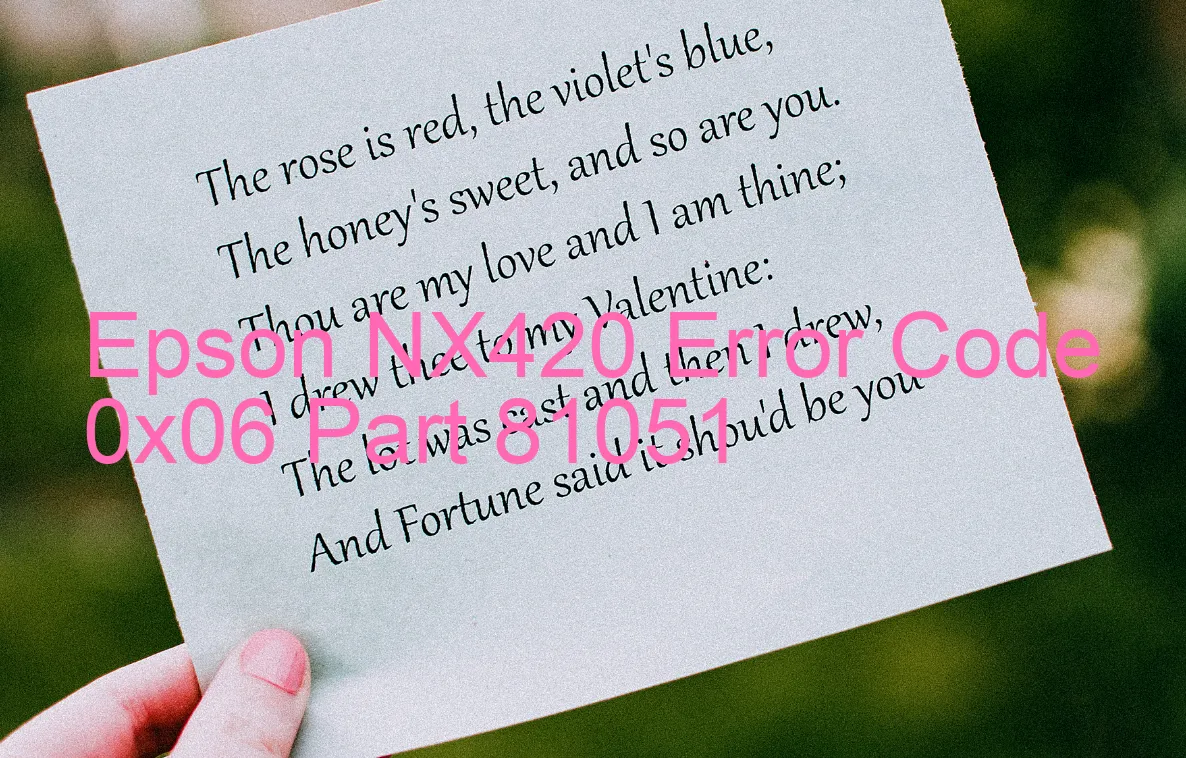 The rose is red, the violet's blue,
The honey's sweet, and so are you.
Thou are my love and I am thine;
I drew thee to my Valentine:
The lot was cast and then I drew,
And Fortune said it shou'd be you
Epson NX420 Error Code
0x06 Part 81051